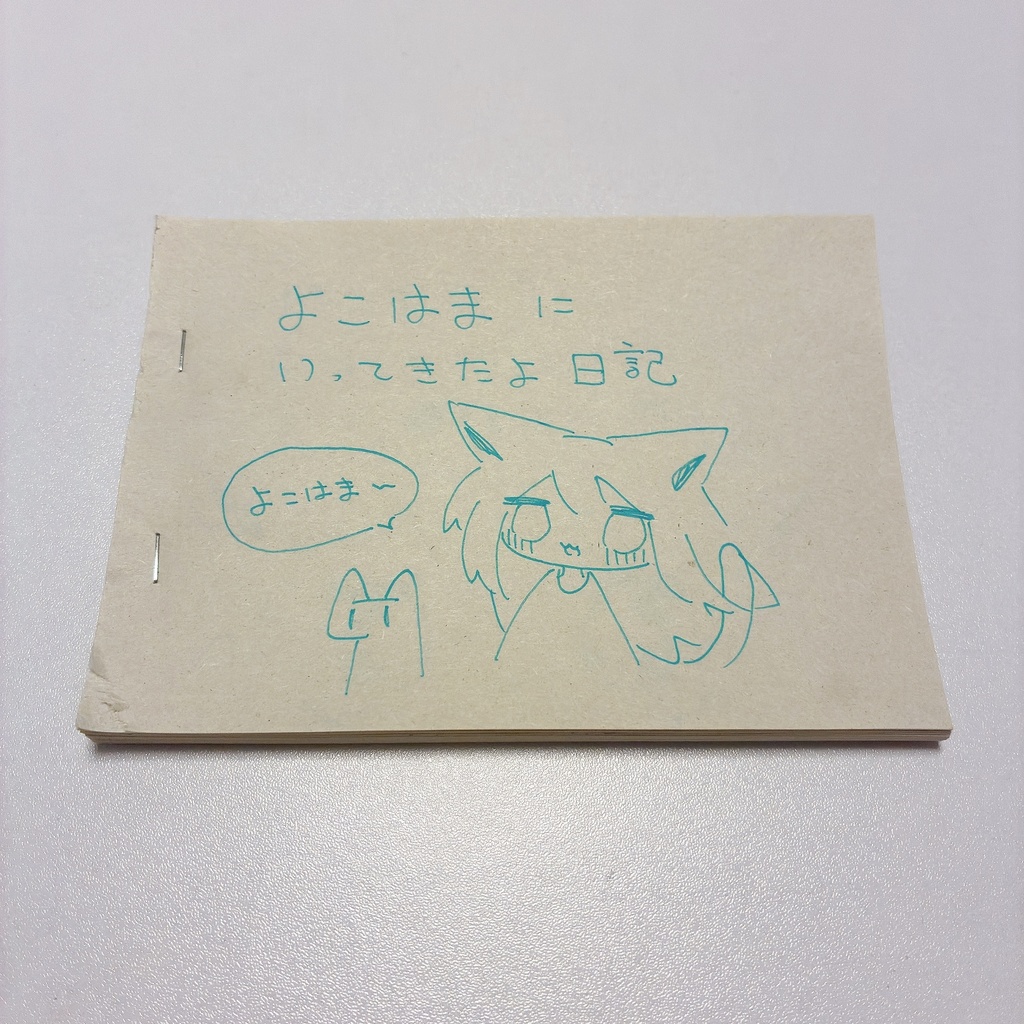 よこはま に
いってきたよ 日記
よこはま〜